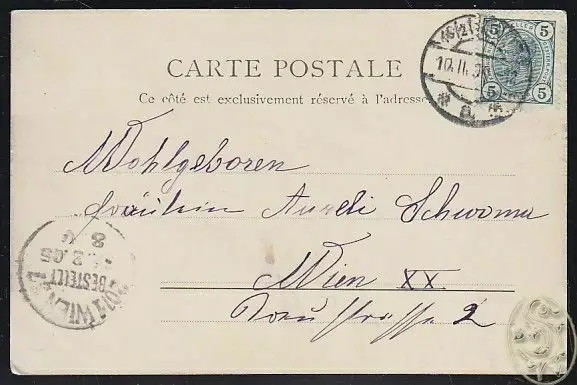 CARTE POSTALE
Ce côté est exclusivement réservé à l'adresse
5 5
10.II.
5 5
* a *
Wohlgeboren
Fräulein Aureli Schwoma
Wien XX.
2
20/1 WIEN
BESTELLT
2.05
8